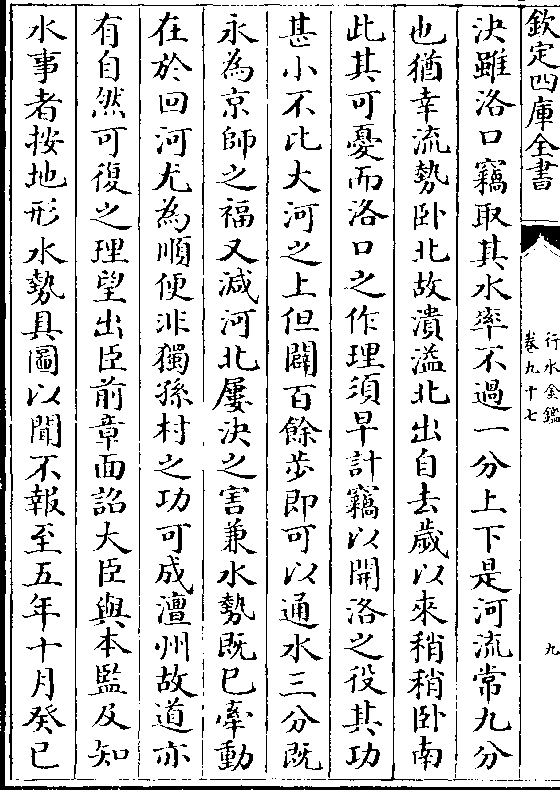 欽定四庫全書
行水金鑑
卷九十七
九
決雖洛口竊取其水率不過一分上下是河流常九分
也猶幸流勢卧北故潰溢北出自去歲以來稍稍卧南
此其可憂而洛口之作理須早計竊以開洛之役其功
甚小不比大河之上但闢百餘步即可以通水三分既
永為京師之福又減河北屢決之害兼水勢既已牽動
在於回河尤為順便非獨孫村之功可成澶州故道亦
有自然可復之理望出臣前章面詔大臣與本監及知
水事者按地形水勢具圖以聞不報至五年十月癸巳